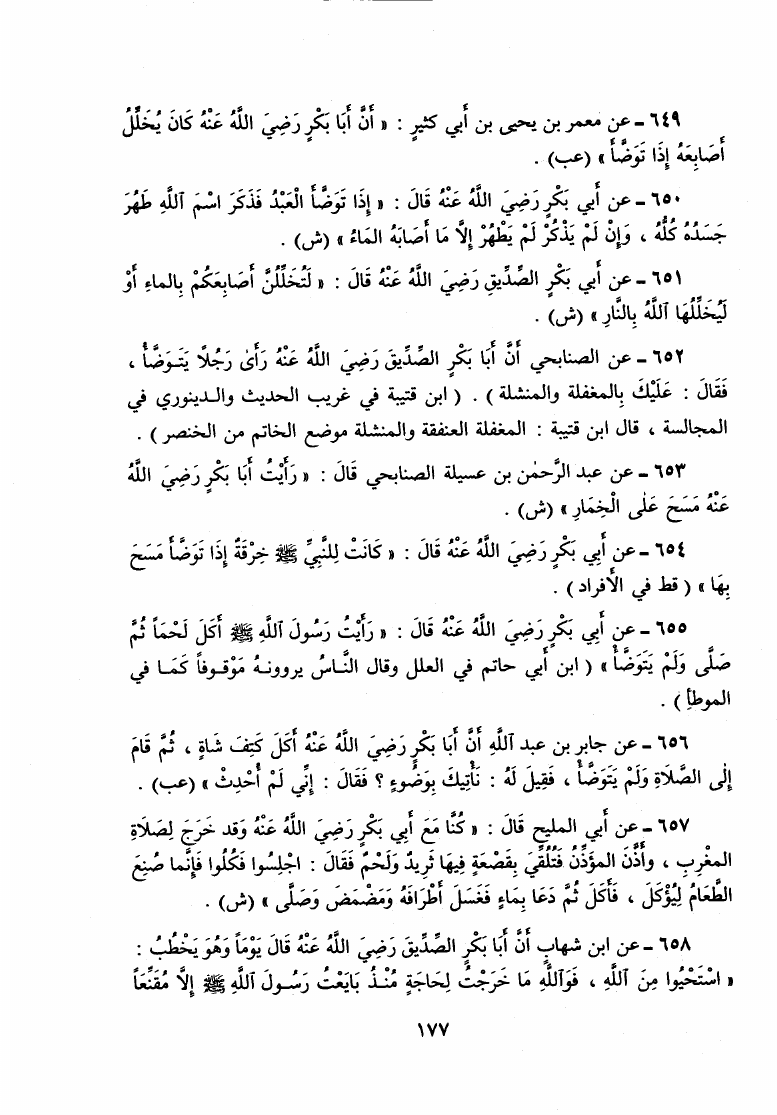 ٦٤٩ - عن معمر بن يحيى بن أبي كثيرٍ : « أَنَّ أَبَا بَكْرٍ رَضِيَ اللَّهُ عَنْهُ كَانَ يُخَلِّلُ
أَصَابِعَهُ إِذَا تَوَضَّأَ » (عب) .
٦٥٠ - عن أبي بَكْرٍ رَضِيَ اللَّهُ عَنْهُ قَالَ : « إِذَا تَوَضَّأَ الْعَبْدُ فَذَكَرَ اسْمَ اللَّهِ طَهُرَ
جَسَدُهُ كُلُّهُ ، وَإِنْ لَمْ يَذْكُرْ لَمْ يَطْهُرْ إِلَّا مَا أَصَابَهُ المَاءُ » (ش) .
٦٥١ - عن أبي بَكْرٍ الصِّدِّيقِ رَضِيَ اللَّهُ عَنْهُ قَالَ : « لَتُخَلِّلُنَّ أَصَابِعَكُمْ بِالماءِ أَوْ
لَيُخَلِّلُهَا اللَّهُ بِالنَّارِ » (ش) .
٦٥٢ - عن الصنابحي أَنَّ أَبَا بَكْرٍ الصِّدِّيقَ رَضِيَ اللَّهُ عَنْهُ رَأَىٰ رَجُلاً يَتَوَضَّأُ ،
فَقَالَ : عَلَيْكَ بِالمغفلة والمنشلة ) . ( ابن قتيبة في غريب الحديث والدينوري في
المجالسة ، قال ابن قتيبة : المغفلة العنفقة والمنشلة موضع الخاتم من الخنصر ) .
٦٥٣ - عن عبد الرَّحمٰن بن عسيلة الصنابحي قَالَ : « رَأَيْتُ أَبَا بَكْرٍ رَضِيَ اللَّهُ
عَنْهُ مَسَحَ عَلَى الْخِمَارِ » (ش) .
٦٥٤ - عن أَبِي بَكْرٍ رَضِيَ اللَّهُ عَنْهُ قَالَ : « كَانَتْ لِلنَّبِيِّ ﷺ خِرْقَةٌ إِذَا تَوَضَّأَ مَسَحَ
بِهَا » ( قط في الأفراد ) .
٦٥٥ - عن أَبِي بَكْرٍ رَضِيَ اللَّهُ عَنْهُ قَالَ : « رَأَيْتُ رَسُولَ اللَّهِ ﷺ أَكَلَ لَحْمَاً ثُمَّ
صَلَّى وَلَمْ يَتَوَضَّأْ » ( ابن أبي حاتم في العلل وقال النَّاسُ يروونهُ مَوْقوفاً كَمَا في
الموطإِ ) .
٦٥٦ - عن جابر بن عبد اللَّهِ أَنَّ أَبَا بَكْرٍ رَضِيَ اللَّهُ عَنْهُ أَكَلَ كَتِفَ شَاةٍ ، ثُمَّ قَامَ
إِلى الصَّلَاةِ وَلَمْ يَتَوَضَّأْ ، فَقِيلَ لَهُ : نَأْتِيكَ بِوَضُوءٍ ؟ فَقَالَ : إِنِّي لَمْ أُحْدِثْ » (عب) .
٦٥٧ - عن أبي المليح قَالَ : « كُنَّا مَعَ أَبِي بَكْرٍ رَضِيَ اللَّهُ عَنْهُ وَقد خَرَجَ لِصَلَاةِ
المغْرِبِ ، وأَذَّنَ المؤَذِّنُ فَتُلُقِّيَ بِقَصْعَةٍ فِيهَا ثَرِيدٌ وَلَحْمٌ فَقَالَ : اجْلِسُوا فَكُلُوا فَإِنَّما صُنِعَ
الطَّعَامُ لِيُؤْكَلَ ، فَأَكَلَ ثُمَّ دَعَا بِمَاءٍ فَغَسَلَ أَطْرَافَهُ وَمَضْمَضَ وَصَلَّى » (ش) .
٦٥٨ - عن ابن شهابٍ أَنَّ أَبَا بَكْرٍ الصِّدِّيقَ رَضِيَ اللَّهُ عَنْهُ قَالَ يَوْمَاً وَهُوَ يَخْطُبُ :
« اسْتَحْيُوا مِنَ اللَّهِ ، فَوَاللَّهِ مَا خَرَجْتُ لِحَاجَةٍ مُنْذُ بَايَعْتُ رَسُولَ اللَّهِ ﷺ إِلَّا مُقَنِّعَاً
١٧٧